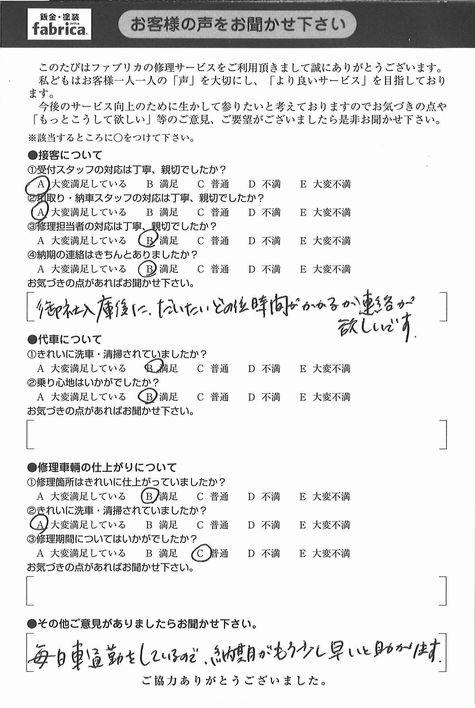 鈑金・塗装
fabrica.
お客様の声をお聞かせ下さい
このたびはファブリカの修理サービスをご利用頂きまして誠にありがとうございます。
私どもはお客様一人一人の「声」を大切にし、「より良いサービス」を目指しており
ます。
今後のサービス向上のために生かして参りたいと考えておりますのでお気づきの点や
「もっとこうして欲しい」等のご意見、ご要望がございましたら是非お聞かせ下さい。
※該当するところに○をつけて下さい。
●接客について
①受付スタッフの対応は丁寧、親切でしたか？
A 大変満足している B 満足 C 普通 D 不満 E 大変不満
②引取り・納車スタッフの対応は丁寧、親切でしたか？
A 大変満足している B 満足 C 普通 D 不満 E 大変不満
③修理担当者の対応は丁寧、親切でしたか？
A 大変満足している B 満足 C 普通 D 不満 E 大変不満
④納期の連絡はきちんとありましたか？
A 大変満足している B 満足 C 普通 D 不満 E 大変不満
お気づきの点があればお聞かせ下さい。
御社入庫後に、だいたいどの位時間がかかるか連絡が
欲しいです。
●代車について
①きれいに洗車・清掃されていましたか？
A 大変満足している B 満足 C 普通 D 不満 E 大変不満
②乗り心地はいかがでしたか？
A 大変満足している B 満足 C 普通 D 不満 E 大変不満
お気づきの点があればお聞かせ下さい。
●修理車輌の仕上がりについて
①修理箇所はきれいに仕上がっていましたか？
A 大変満足している B 満足 C 普通 D 不満 E 大変不満
②きれいに洗車・清掃されていましたか？
A 大変満足している B 満足 C 普通 D 不満 E 大変不満
③修理期間についてはいかがでしたか？
A 大変満足している B 満足 C 普通 D 不満 E 大変不満
お気づきの点があればお聞かせ下さい。
●その他ご意見がありましたらお聞かせ下さい。
毎日車通勤をしているので、納期がもう少し早いと助かります。
ご協力ありがとうございました。